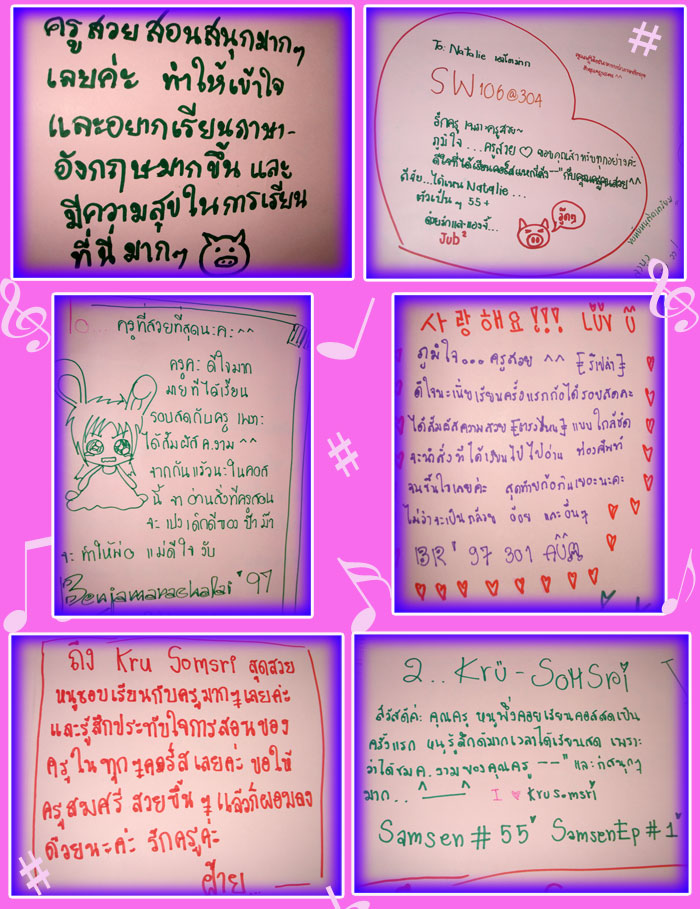 ครูสวย สอนสนุกมากๆ
เลยค่ะ ทำให้เข้าใจ
และอยากเรียนภาษา-
อังกฤษมากขึ้น และ
มีความสุขในการเรียน
ที่นี่ มากๆ
To: Natalie
SW106@304
ภูมิใจ...ครูสวย ♡ ขอบคุณสำหรับทุกอย่างค่ะ
ดีจัย...ได้เหน Natalie...
ตัวเป็นๆ 55+
Jub²
ครูที่สวยที่สุดนะคะ ^^
ครูคะ ดีใจมาก
มายที่ได้เรียน
รอบสดกับครู เพราะ
ได้สัมผัส ค.งาม ^^
จากกันแล้วนะในคอส
นี้ จาอ่านสิ่งที่ครูสอน
จะ เปงเด๊กดีของ ป๊าม๊า
จะ ทำให้พ่อ แม่ดีใจ งับ
Benjamarachalai' 97
사랑해요!!! Luv U
ภูมิใจ... ครูสวย ^^
ดีใจนะเนี่ยเรียนครั้งแรกก้อได้รอบสดคะ
แบบใกล้ชิด
จะนำสิ่งที่ได้เรียนไปไปอ่าน ท่องศัพท์
จนขึ้นใจเลยค่ะ
ไม่ว่าจะเป็น กล้วย อ้อย และอื่นๆ
BR' 97 301
ถึง Kru Somsri สุดสวย
หนูชอบเรียนกับครูมากๆเลยค่ะ
และรู้สึกประทับใจการสอนของ
ครูในทุกๆคอร์สเลยค่ะ ขอให้
ครูสมศรี สวยขึ้นๆ แล้วก็ผอมลง
ด้วยนะค่ะ รักครูค่ะ
ฝ้าย...
2.. Krü-Somsri
สวัสดีค่ะ คุณครู หนูพึ่งคอยเรียนคอสสดเป็น
ครั้งแรก หนูรู้สึกดีมากเวลาได้เรียนสด เพราะ
ว่าได้ชม ค.งามของคุณครู --" และก้สนุกๆ
มาก.. ^___^ I ♥ Kru Somsri
Samsen # 55" SamsenEp # 1"